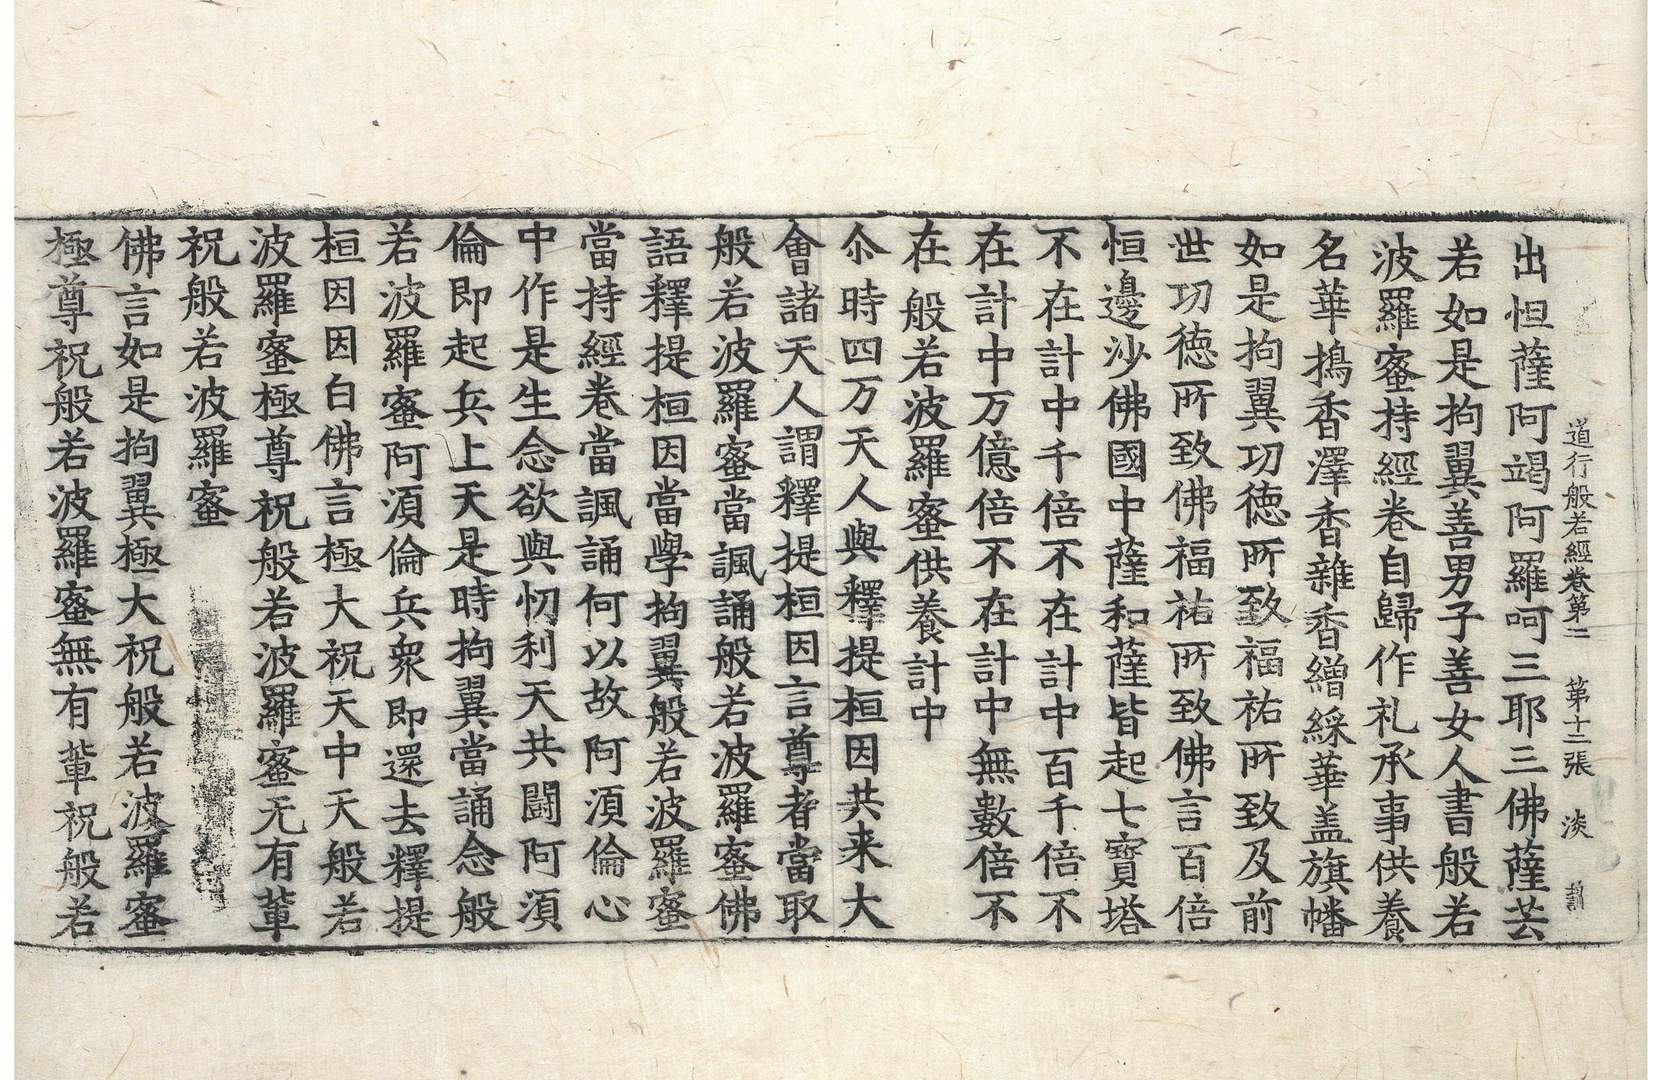 道行般若經卷第二 第十二張 淡
出怛薩阿竭阿羅呵三耶三佛薩芸
若如是拘翼善男子善女人書般若
波羅蜜持經卷自歸作礼承事供養
名華擣香澤香雜香繒綵華盖旗幡
如是拘翼功德所致福祐所致及前
世功德所致佛福祐所致佛言百倍
恒邊沙佛國中薩和薩皆起七寶塔
不在計中千倍不在計中百千倍不
在計中万億倍不在計中無數倍不
在般若波羅蜜供養計中
尒時四万天人與釋提桓因共来大
會諸天人謂釋提桓因言尊者當取
般若波羅蜜當諷誦般若波羅蜜佛
語釋提桓因當學拘翼般若波羅蜜
當持經卷當諷誦何以故阿湏倫心
中作是生念欲與忉利天共鬪阿湏
倫即起兵上天是時拘翼當誦念般
若波羅蜜阿湏倫兵衆即還去釋提
桓因因白佛言極大祝天中天般若
波羅蜜極尊祝般若波羅蜜无有輩
祝般若波羅蜜
佛言如是拘翼極大祝般若波羅蜜
極尊祝般若波羅蜜無有輩祝般若